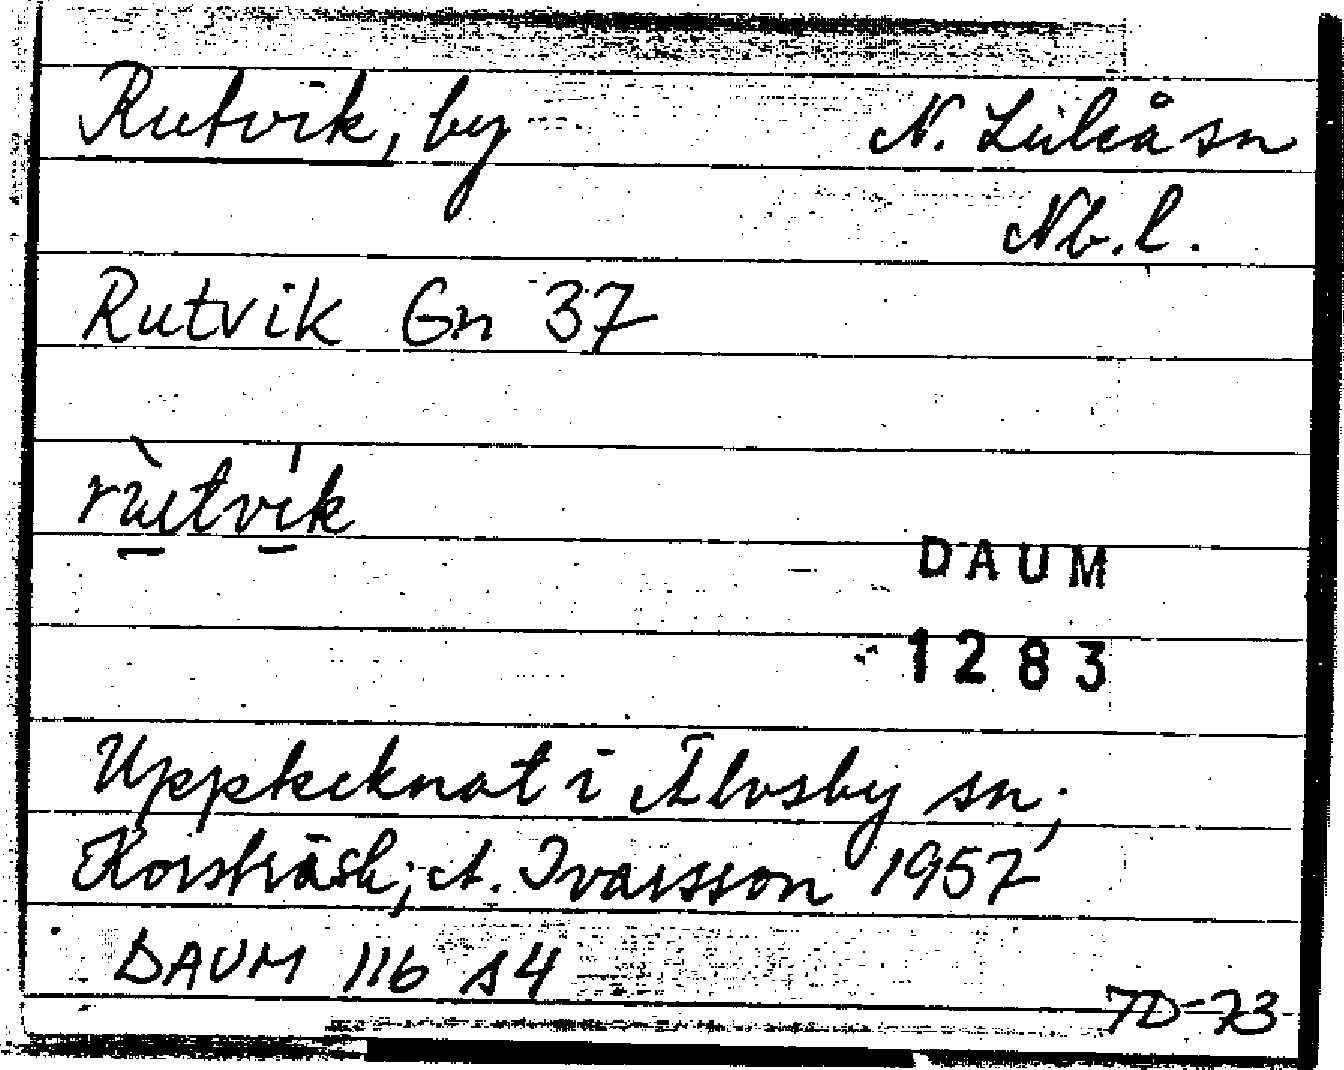 Rutvik, by N. Luleå sn
Nb. l.
Rutvik Gn 37
rùtvík
DAUM
1283
Upptecknat i Älvsby sn,
Korsträsk; A. Ivarsson 1957
DAUM 116 s4
7D-73